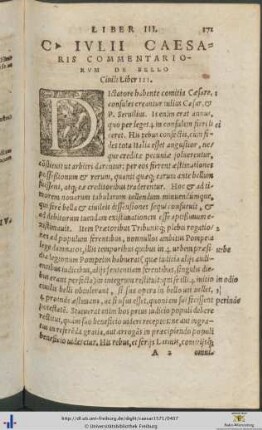 LIBER III.
C. IVLII CAESA-
RIS COMMENTARIO-
RVM DE BELLO
Ciuili Liber III.
DIctatore habente comitia Cæsare, 1
consules creantur Iulius Cæsar, &
P. Seruilius. Is enim erat annus,
quo per leges 2 in consulem fieri li
ceret. His rebus confectis, cum fides
tota Italia esset angustior, ne-
que creditæ pecuniæ soluerentur,
constituit ut arbitri darentur: per eos fierent æstimationes
possessionum & rerum, quanti quæque earum ante bellum
fuissent, atque eæ creditoribus traderentur. Hoc & ad ti-
morem nouarum tabularum tollendum minuendumque,
qui ferè bella & ciuiles dissensiones sequi consueuit, &
ad debitorum tuendam existimationem esse aptissimum e-
xistimauit. Item Prætoribus Tribunisque plebis rogatio-
nes ad populum ferentibus, nonnullos ambitus Pompeia
lege damnatos, illis temporibus quibus in urbem præsi-
dia legionum Pompeius habuerat (quæ iudicia alijs audi-
entibus iudicibus, alijs sententiam ferentibus, singulis die-
bus erant perfecta) in integrum restituit: qui se illi initio
ciuilis belli obtulerant, si sua opera in bello uti uellet,
proinde æstimans, ac si usi esset, quoniam sui fecissent
potestatem. Statuerat enim hos prius iudicio populi debere
restitui, quàm suo beneficio uideri receptos: ne aut ingra-
tus in referenda gratia, aut arrogans in præripiendo populi
beneficio uideretur. His rebus, et ferijs Latinis, comitijsque
A 2 omni-
urbe
in odio
perinde
http://dl.ub.uni-freiburg.de/diglit/caesar1571/0497
© Universitätsbibliothek Freiburg